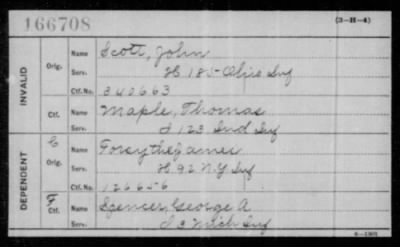 166708
(3-H-4)
INVALID
Orig.
Name Scott, John
Serv. H 185 Ohio Inf
Ctf. No. 340663
Ctf.
Name Maple, Thomas
Serv. I 123 Ind Inf
DEPENDENT
C
Orig.
Name Forsythe James
Serv. H. 92 N.Y Inf
Ctf. No. 126656
F
Ctf.
Name Spencer, George A
Serv. I 3 Mich Inf